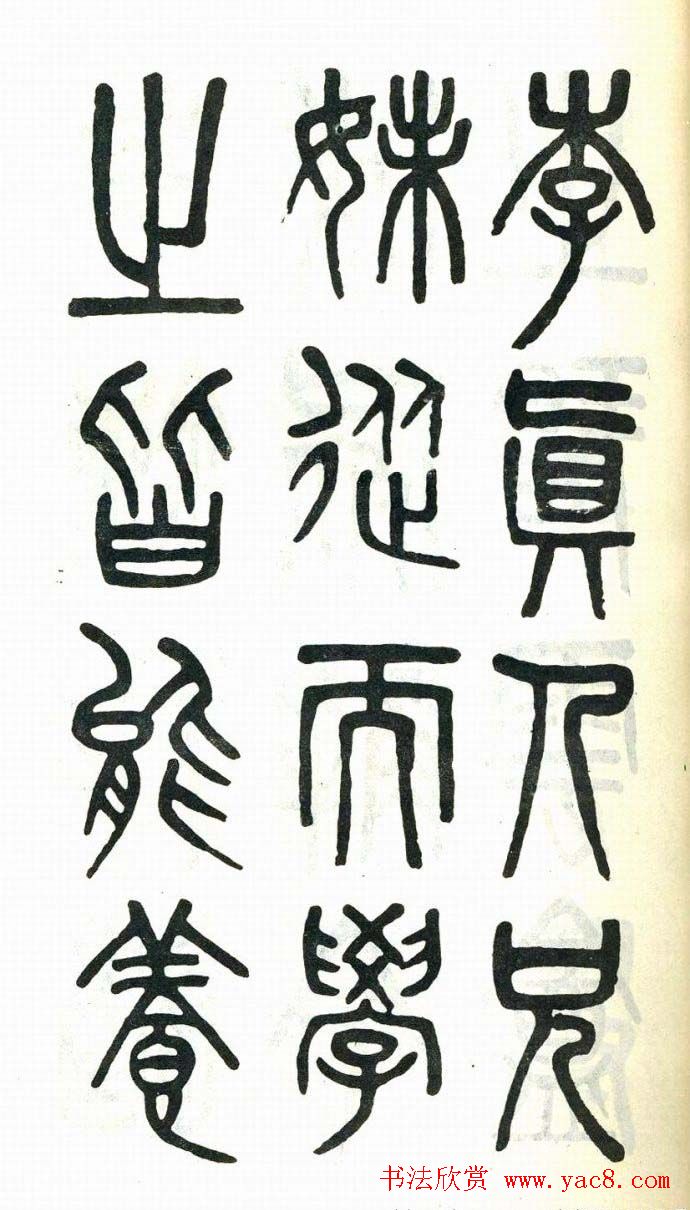 李眞人兄
妹從而學
之皆能養
书法欣赏 www.yac8.com